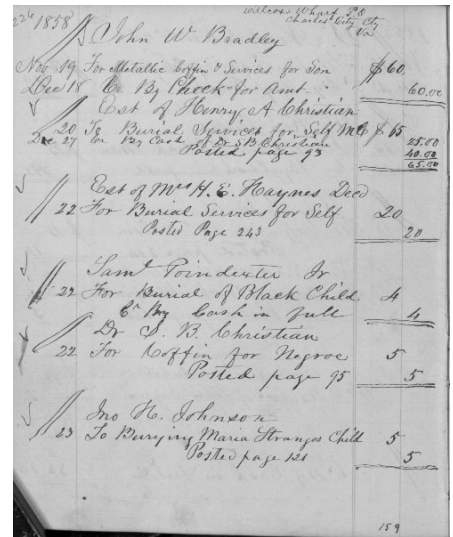 Willcoxs Wharf P.O
Charles City Cty
Va
226 1858
John W. Bradley
Nov 19 For Metallic Coffin & Services for Son $60
Dec 18 Cr By Check for Amt 60.00
Est of Henry A Christian
20 To Burial Services for Self $65
Dec 27 Cr By Cash of Dr S B Christian 25.00
Posted page 93 40.00
65.00
Est of Mrs H. E. Haynes Decd
22 For Burial Services for Self 20
Posted Page 243 20
Saml Poindexter Jr
22 For Burial of Black Child 4
Cr By Cash in full 4
Dr S. B. Christian
22 For Coffin for Negroe 5
Posted page 95 5
Jno H. Johnson
23 To Burying Maria Stranges Child 5
Posted page 121 5
159